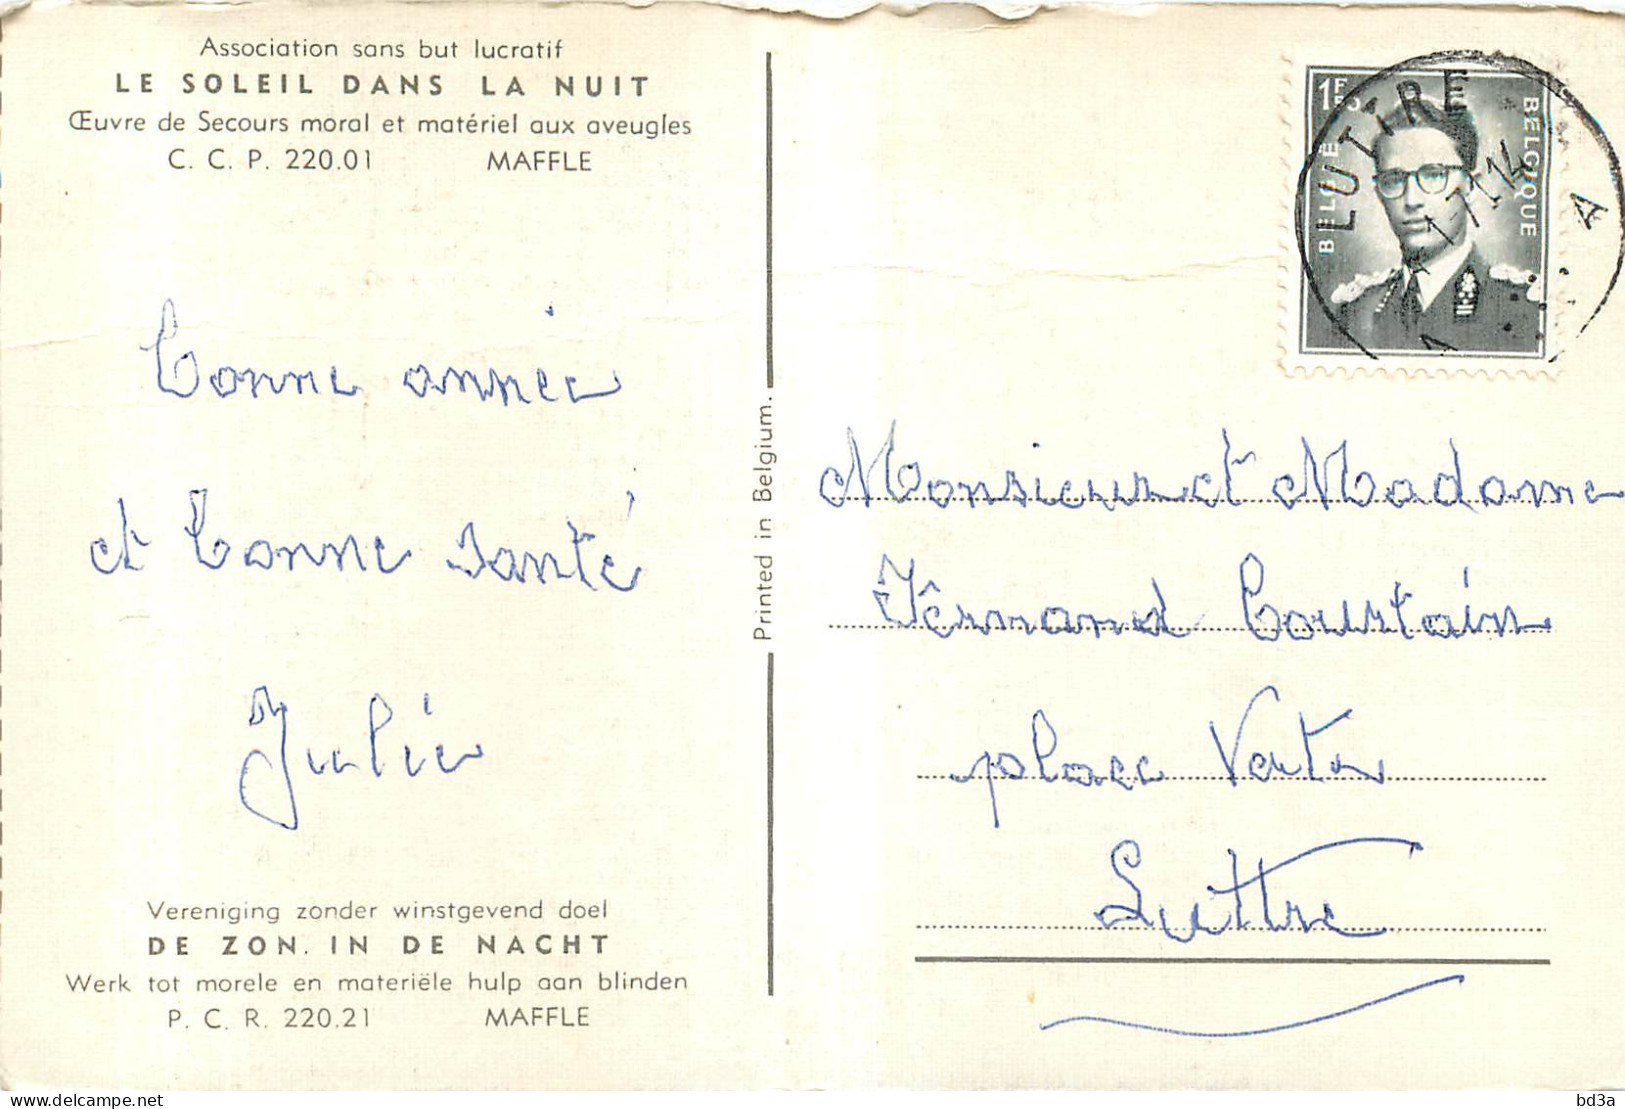 Association sans but lucratif
LE SOLEIL DANS LA NUIT
Œuvre de Secours moral et matériel aux aveugles
C. C. P. 220.01 MAFFLE
bonne année
et bonne santé
Julie
Vereniging zonder winstgevend doel
DE ZON. IN DE NACHT
Werk tot morele en materiële hulp aan blinden
P. C. R. 220.21 MAFFLE
Printed in Belgium.
1F50
BELGIE
BELGIQUE
LUTTRE
A A
Monsieur et Madame
Fernand Courtain
place Verte
Luttre
delcampe.net
bd3a